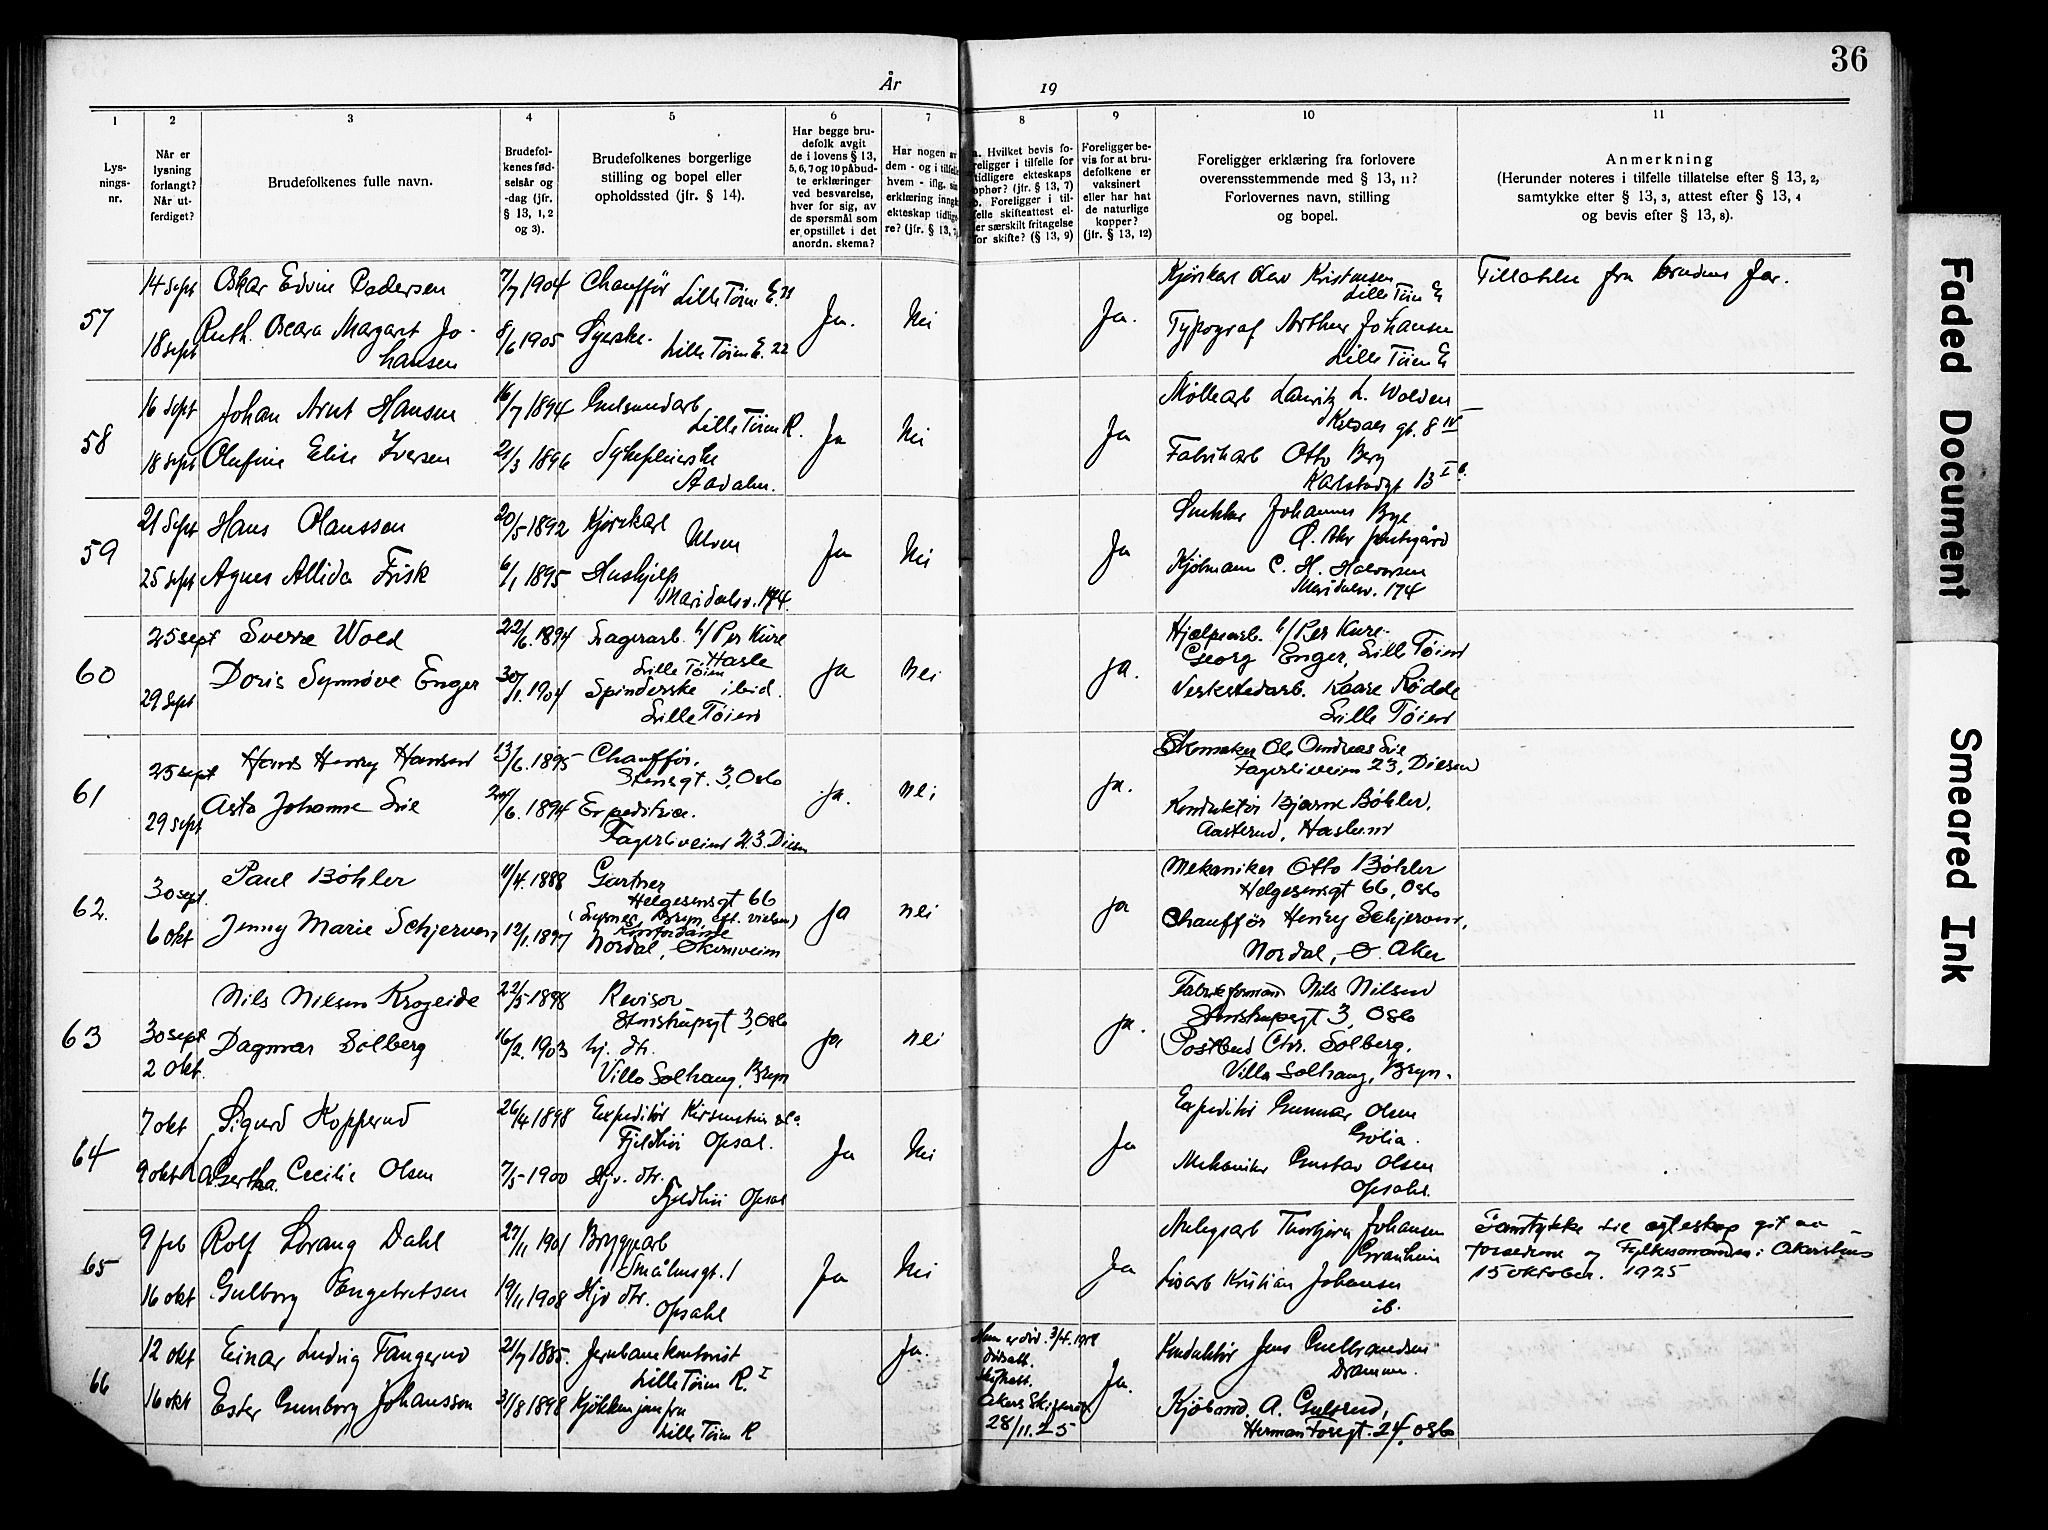 36
År 19
1 2 3 4 5 6 7 8 9 10 11
Lys-
nings-
nr.
Når er
lysning
forlangt?
Når ut-
ferdiget?
Brudefolkenes fulle navn.
Brudefol-
kenes fød-
selsår og
-dag (jfr.
§ 13, 1, 2
og 3).
Brudefolkenes borgerlige
stilling og bopel eller
opholdssted (jfr. § 14).
Har begge bru-
defolk avgit
de i lovens § 13,
5, 6, 7 og 10 påbud-
te erklæringer
ved besvarelse,
hver for sig, av
de spørsmål som
er opstillet i det
anordn. skema?
Har nogen
dem - og i tilfelle
hvem - iflg. sin
erklæring inngåt
ekteskap tidlige-
re? (jfr. § 13,
a. Hvilket bevis fo-
religger i tilfelle for
tidligere ekteskaps
ophør? (jfr. § 13, 7)
b. Foreligger i til-
felle skifteattest el-
ler særskilt fritagelse
for skifte? (§ 13, 9)
Foreligger be-
vis for at bru-
defolkene er
vaksinert
eller har hat
de naturlige
kopper?
(jfr. § 13, 12)
Foreligger erklæring fra forlovere
overensstemmende med § 13, 11?
Forlovernes navn, stilling
og bopel.
Anmerkning
(Herunder noteres i tilfelle tillatelse efter § 13, 2,
samtykke efter § 13, 3, attest efter § 13, 4
og bevis efter § 13, 8).
57
14 sept
18 sept
Oskar Edvin Pedersen
Ruth. Oscara Margart Jo-
hansen
7/7 1904
8/6 1905
Chauffør
Lille Tøien E.
Syerske.
Lille Tøien E. 22
Ja.
Nei
Ja.
Kjørekar Olav Kristensen
Lille Tøien E
Typograf Arthur Johansen
Lille Tøien E
Tillatelse fra brudens far.
58
16 sept
18 sept
Johan Arnt Hansen
Olufine Elise Iversen
16/7 1894
21/3 1896
Lille Tøien R.
Sykepleierske
Ja
Nei
Ja
Møllearb Lauritz L. Wolden
gt. 8 IV
Fabrikarb Otto Berg
Karlstadgt 13 I
59
21 sept
25 sept
Hans Olaussen
Agnes Allida Frisk
20/5 1892
6/1 1895
Kjørekar
Ulven
Hushjelp
Maridalsv. 174
Ja
Nei
Ja
Snekker Johannes Bye
Ø. Aker prestegård
Kjøbmann C. H. Halvorsen
Maridalsv. 174
60
25 sept
29 sept
Sverre Wold
Doris Synnøve Enger
22/6. 1894
30/1. 1904
Lagerarb. h/ Per Kure
Hasle
Lille Tøien
Spinderske ibid.
Lille Tøien
ja
nei
ja.
Hjælpearb. h/ Per Kure.
Georg Enger, Lille Tøien
Verkstedarb. Kaare Rødde
Lille Tøien
61
25 sept
29 sept
Hans Henry Hansen
Asta Johanne Lie
13/6. 1895
24/6. 1894
Chauffør.
Stensgt. 3, Oslo
Expeditrise.
Fagerliveien 23. Disen
ja.
nei
ja.
Skomaker Ole Andreas Lie
Fagerliveien 23, Disen
Konduktør Bjarne Bøhler.
Aasterud, Haslum
62.
30 sept.
6 okt
Paul Bøhler
Jenny Marie Schjerven
11/4. 1888
12/1. 1897
Gartner
Helgesensgt 66
(Lysnes, Bryn eft. vielsen)
Kontordame
Nordal, Økernveien
ja
nei
ja
Mekaniker Otto Bøhler
Helgesensgt 66, Oslo
Chauffør Henry Schjerven,
Nordal, Ø. Aker
63
30 sept
2 okt.
Nils Nilsen Krogeide
Dagmar Solberg
22/5 1898
16/2. 1903
Revisor
Stenstrupsgt 3, Oslo
hj. dtr.
Villa Solhaug, Bryn
ja
nei
ja.
Fabrikformann Nils Nilsen
Stenstrupsgt 3, Oslo
Postbud Chr. Solberg.
Villa Solhaug, Bryn.
64
7 okt
9 okt
Sigurd Kopperud
Bertha Cecilie Olsen
26/4 1898
7/5 1900
Expeditør
Fjeldhøi Opsal.
Hjv. dtr.
Fjeldhøi Opsal
Ja
Nei
Ja
Expeditør Gunnar Olsen
Golia.
Mekaniker Gustav Olsen
Opsahl.
65
9 feb
16 okt
Rolf Lorang Dahl
Gulborg Engebretsen
27/11 1901
19/11 1908
Bryggearb
Smålensgt. 1
Hjv dtr.
Opsahl
Ja
Nei
Ja
Anlegsarb Thorbjørn Johansen
Granheim
Kristian Johansen
ib.
Samtykke til egteskap git av
foreldrene og Fylkesmannen i Akershus
15 oktober. 1925
66
12 okt
16 okt
Einar Ludvig Tangerud
Ester Gunborg Johansson
21/7 1885.
31/8 1898
Jernbanekontorist
Lille Tøien R. I
Kjøkkenjomfru
Lille Tøien R
Ja.
Hun er død. 3/4. 1918
Dødsatt.
Skifteatt.
Akers Skifterett
28/11. 25
Ja.
Konduktør Jens Gulbrandsen
Drammen.
Kjøbmd. A. Gulsrud,
Herman Fossgt. 24, Oslo
Faded Document
Smeared Ink